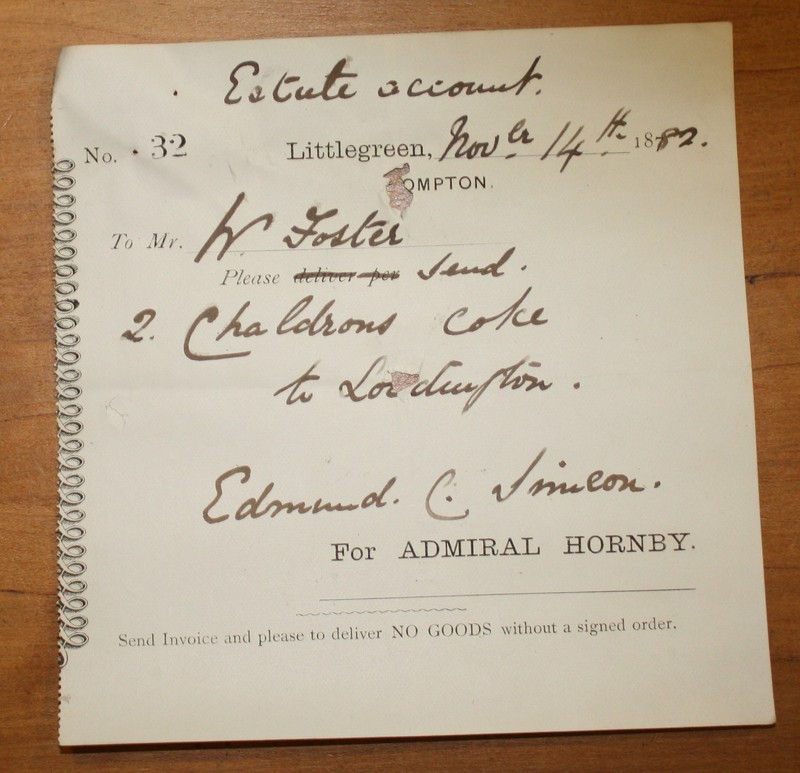 Estate account.
No. 32 Littlegreen, Novber 14th 1882.
OMPTON.
To Mr. W Foster
Please deliver per Send.
2. Chaldrons coke
to Lordington.
Edmund. C. Simeon.
For ADMIRAL HORNBY.
Send Invoice and please to deliver NO GOODS without a signed order.